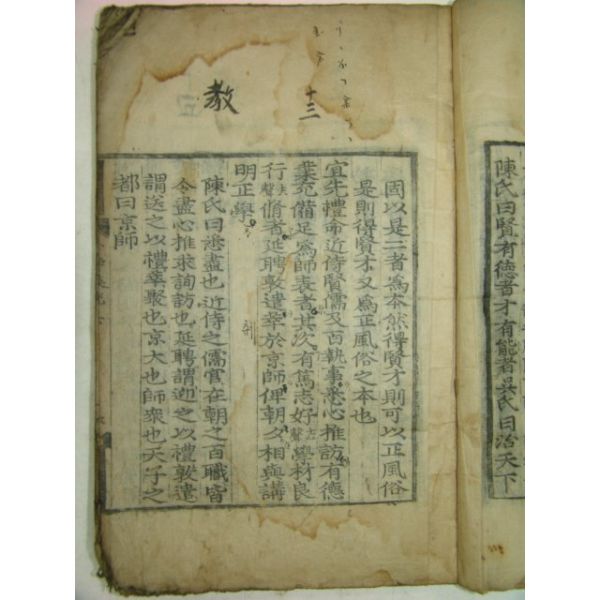 陳氏曰賢有德者才有能者吳氏曰治天下
國以是二者爲本然得賢才則可以正風俗
是則得賢才又爲正風俗之本也
宜先禮命近侍賢儒及百執事悉心推訪有德
業充備足爲師表者其次有篤志好去聲學材良
行去聲脩者延聘敦遣萃於京師俾朝夕相與講
明正學
陳氏曰悉盡也近侍之儒官在朝之百職皆
令盡心推求詢訪也延聘謂迎之以禮敦遣
謂送之以禮萃聚也京大也師衆也天子之
都曰京師
十三
敎
취